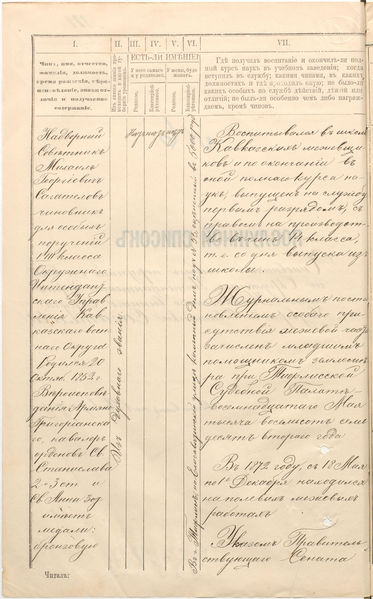 I.
II.
III.
IV.
V.
VI.
VII.
Чинъ, имя, отчество,
фамилія, должность,
время рожденія, вѣро-
исповѣданіе, знаки от-
личія и получаемое
содержаніе.
ЕСТЬ-ЛИ ИМѢНІЕ
У него самаго
и у родителей.
У жены, буде
женатъ.
Родовое.
Благопріобрѣтенное.
Родовое.
Благопріобрѣтенное.
Гдѣ получилъ воспитаніе и окончилъ-ли пол-
ный курсъ наукъ въ учебномъ заведеніи; когда
вступилъ въ службу; какими чинами, въ какихъ
должностяхъ и гдѣ проходилъ оную; не было-ли
какихъ особыхъ по службѣ дѣйствій, или
отличій; не былъ-ли особенно чѣмъ либо награж-
даемъ, кромѣ чиновъ.
Надворный
Совѣтникъ
Михаилъ
Георгіевичъ
чиновникъ
для особыхъ
порученій
VIII класса
Окружнаго
Интендант-
скаго Управ-
ленія Кав-
казскаго воен-
наго Округа
Родился 20
Октяб. 1852 г.
Вѣроисповѣ-
данія Армяно-
Григоріанска-
го, кавалеръ
орденовъ Св.
Станислава
2 и 3 ст. и
Св. Анны 3 ст.
имѣетъ
медали:
бронзовую
Изъ духовнаго званія
Воспитывался въ школѣ
Кавказскихъ межевщи-
ковъ и по окончаніи въ
оной полнаго курса на-
укъ, выпущенъ на службу
первымъ разрядомъ, съ
правомъ на производст-
во въ чинъ XIV класса,
т. е. со дня выпуска изъ
школы.
Журнальнымъ поста-
новленіемъ особаго при-
сутствія межевой части
зачисленъ младшимъ
помощникомъ землемѣ-
ра при Тифлисской
Судебной Палатѣ
восемнадцатаго Мая
тысяча восемьсотъ семь-
десятъ втораго года
Въ 1872 году, съ 18 Мая
по 1е Декабря находился
на полевыхъ межевыхъ
работахъ
Указомъ Правитель-
ствующаго Сената
Читалъ: